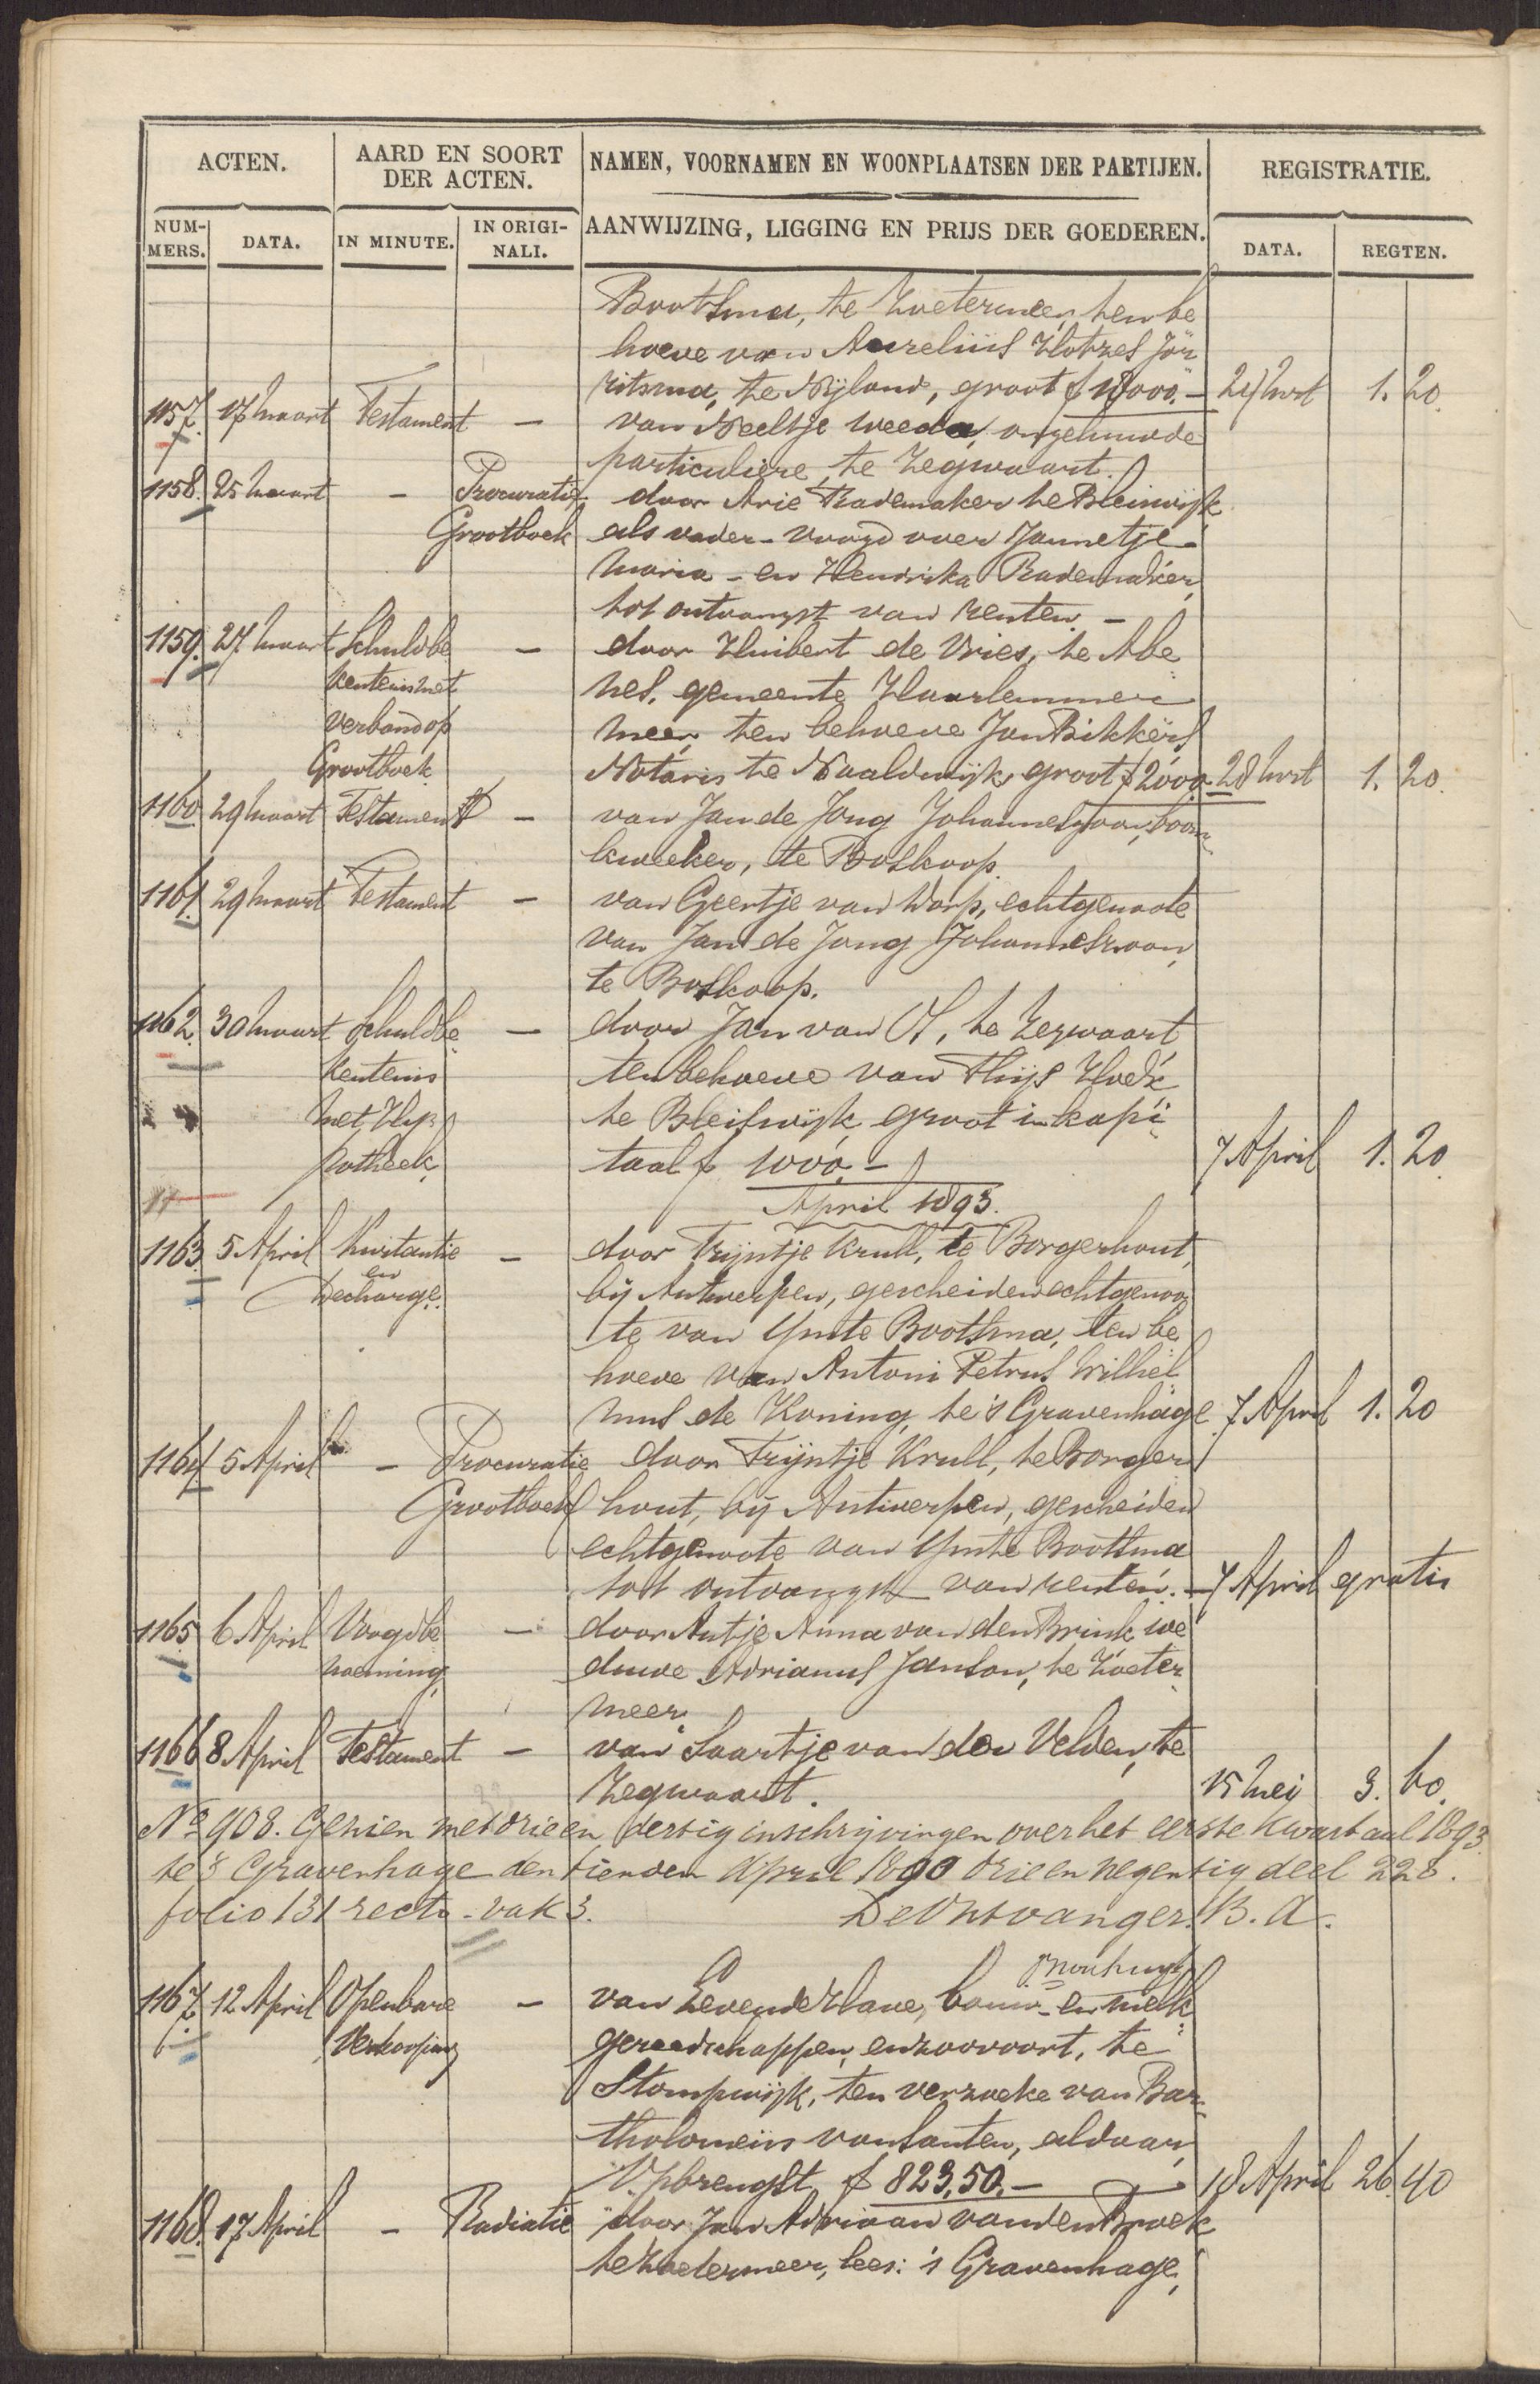 ACTEN. AARD EN SOORT DER ACTEN. NAMEN, VOORNAMEN EN WOONPLAATSEN DER PARTIJEN. REGISTRATIE.
NUM-MERS. DATA. IN MINUTE. IN ORIGI-NALI. AANWIJZING, LIGGING EN PRIJS DER GOEDEREN. DATA. REGTEN.
Bootsma, te Zoetermeer, ten be
hoeve van Aurelius Hotzes Jor
ritsma, te Nijland, groot f 18000.- 24 Mrt 1. 20.
1157. 17 Maart Testament - van Neeltje Weeda, ongehuwde
particuliere, te Zegwaart.
1158. 25 Maart - Procuratie door Arie Rademaker te Bleiswijk
Grootboek als vader-voogd over Jannetje
Maria - en Hendrika Rademaker,
tot ontvangst van renten. -
1159. 27 Maart Schuldbe - door Huibert de Vries, te Abe
kentenis met nes, gemeente Haarlemmer
verband op meer, ten behoeve Jan Bikkers
Grootboek Notaris te Naaldwijk, groot f 2000.- 28 Mrt 1. 20.
1160. 29 Maart Testament - van Jan de Jong Johanneszoon, boom
kweeker, te Boskoop.
1161. 29 Maart Testament - van Geertje van Worp, echtgenoote
van Jan de Jong Johanneszoon,
te Boskoop.
1162. 30 Maart Schuldbe - door Jan van Os, te Zegwaart
kentenis ten behoeve van Thijs Hoek
met Hy te Bleiswijk, groot in kapi
potheek, taal f 1000.- 7 April 1. 20.
April 1893.
1163. 5 April Kwitantie - door Trijntje Krull, te Borgerhout,
en
Decharge. bij Antwerpen, gescheiden echtgenoo
te van Ymte Bootsma, ten be
hoeve van Antoni Petrus Wilhel
mus de Koning, te 's Gravenhage. 7 April 1. 20
1164 5 April - Procuratie door Trijntje Krull, te Borger
Grootboek hout, bij Antwerpen, gescheiden
echtgenoote van Ymte Bootsma
tot ontvangst van renten. - 7 April gratis
1165 6 April Voogdbe - door Antje Anna van den Brink we
noeming, duwe Adrianus Janson, te Zoeter
meer.
1166 8 April Testament - van Saartje van der Velden, te
Zegwaart. 15 Mei 3. 60.
No 908. Gezien met drie en dertig inschrijvingen over het eerste kwartaal 1893
te 's Gravenhage den tienden April 1800 drie en negentig deel 228.
folio 131 recto - vak 3. De Ontvanger. B. A.
1167. 12 April Openbare - van Levende Have, bouw - en melk
Verkooping gereedschappen, enzoovoort, te
Stompwijk, ten verzoeke van Bar
tholomeus van Santen, aldaar,
Opbrengst f 823,50.- 18 April 26. 40
1168. 17 April - Radiatie door Jan Adriaan van den Broek
te Zoetermeer, lees: 's Gravenhage,